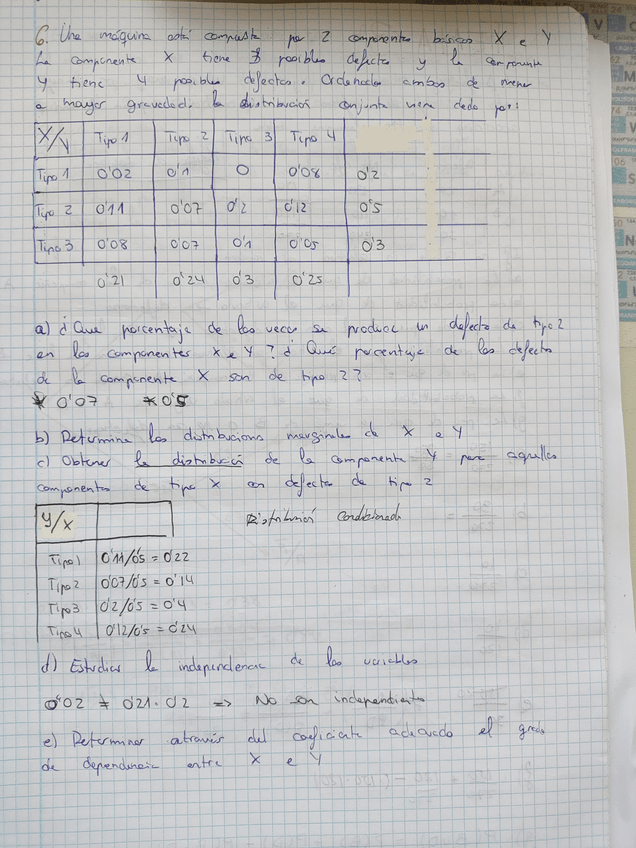 6. Una máquina está compuesta por 2 componentes básicos X e Y
La componente X tiene 3 posibles defectos y la componente
Y tiene 4 posibles defectos. Ordenados ambos de menor
a mayor gravedad. la distribución conjunta viene dada por:
X/Y Tipo 1 Tipo 2 Tipo 3 Tipo 4
Tipo 1 0'02 0'1 0 0'08 0'2
Tipo 2 0'11 0'07 0'2 0'12 0'5
Tipo 3 0'08 0'07 0'1 0'05 0'3
0'21 0'24 0'3 0'25
a) ¿Que porcentaje de las veces se produce un defecto de tipo 2
en los componentes X e Y? ¿Qué porcentaje de los defectos
de la componente X son de tipo 2?
* 0'07 * 0'5
b) Determina las distribucions marginales de X e Y
c) Obtener la distribució de la componente Y para aquellas
componentes de tipo X con defectos de tipo 2
Y/X Distribución condicionada
Tipo 1 0'11/0'5 = 0'22
Tipo 2 0'07/0'5 = 0'14
Tipo 3 0'2/0'5 = 0'4
Tipo 4 0'12/0'5 = 0'24
d) Estudiar la independencia de las variables
0'02 ≠ 0'21·0'2 => No son independientes
e) Determinar através del coeficiente adecuado el grado
de dependencia entre X e Y